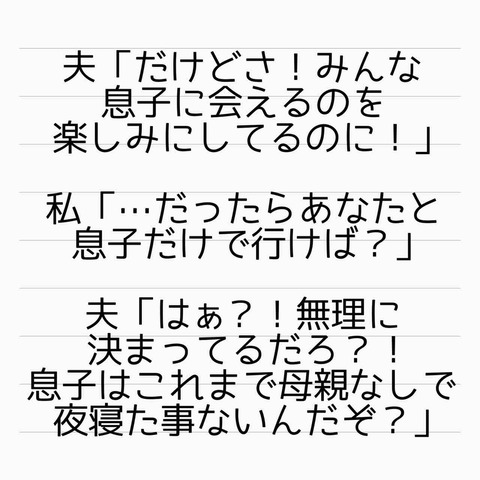 夫「だけどさ！みんな
息子に会えるのを
楽しみにしてるのに！」
私「…だったらあなたと
息子だけで行けば？」
夫「はぁ？！無理に
決まってるだろ？！
息子はこれまで母親なしで
夜寝た事ないんだぞ？」